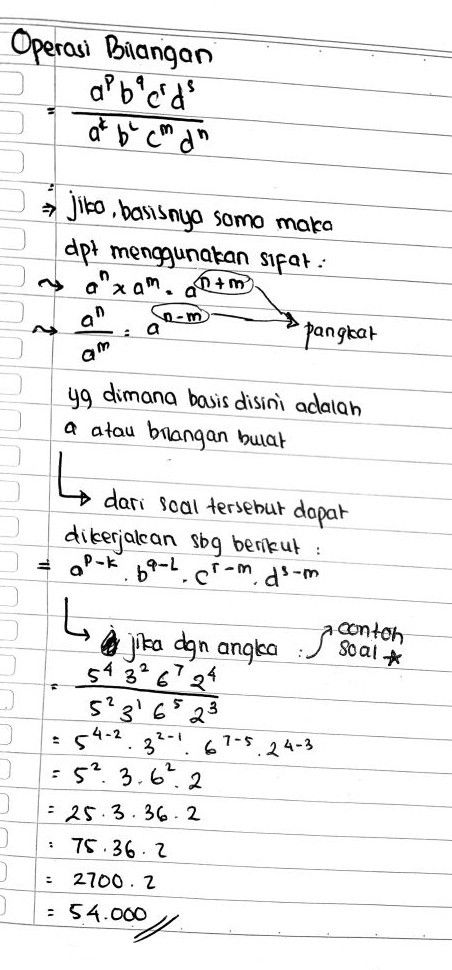 Operasi Bilangan
= a^p b^q c^r d^s / a^k b^L c^m d^n
⇒ jika, basisnya sama maka
dpt menggunakan sifat :
~> a^n x a^m = a^(n+m)
~> a^n / a^m = a^(n-m) → pangkat
yg dimana basis disini adalah
a atau bilangan bulat
↳ dari soal tersebut dapat
dikerjakan sbg berikut :
= a^(p-k) . b^(q-L) . c^(r-m) . d^(s-m)
↳ jika dgn angka : contoh soal ☆
= 5^4 3^2 6^7 2^4 / 5^2 3^1 6^5 2^3
= 5^(4-2) . 3^(2-1) . 6^(7-5) . 2^(4-3)
= 5^2 . 3 . 6^2 . 2
= 25 . 3 . 36 . 2
= 75 . 36 . 2
= 2700 . 2
= 54.000